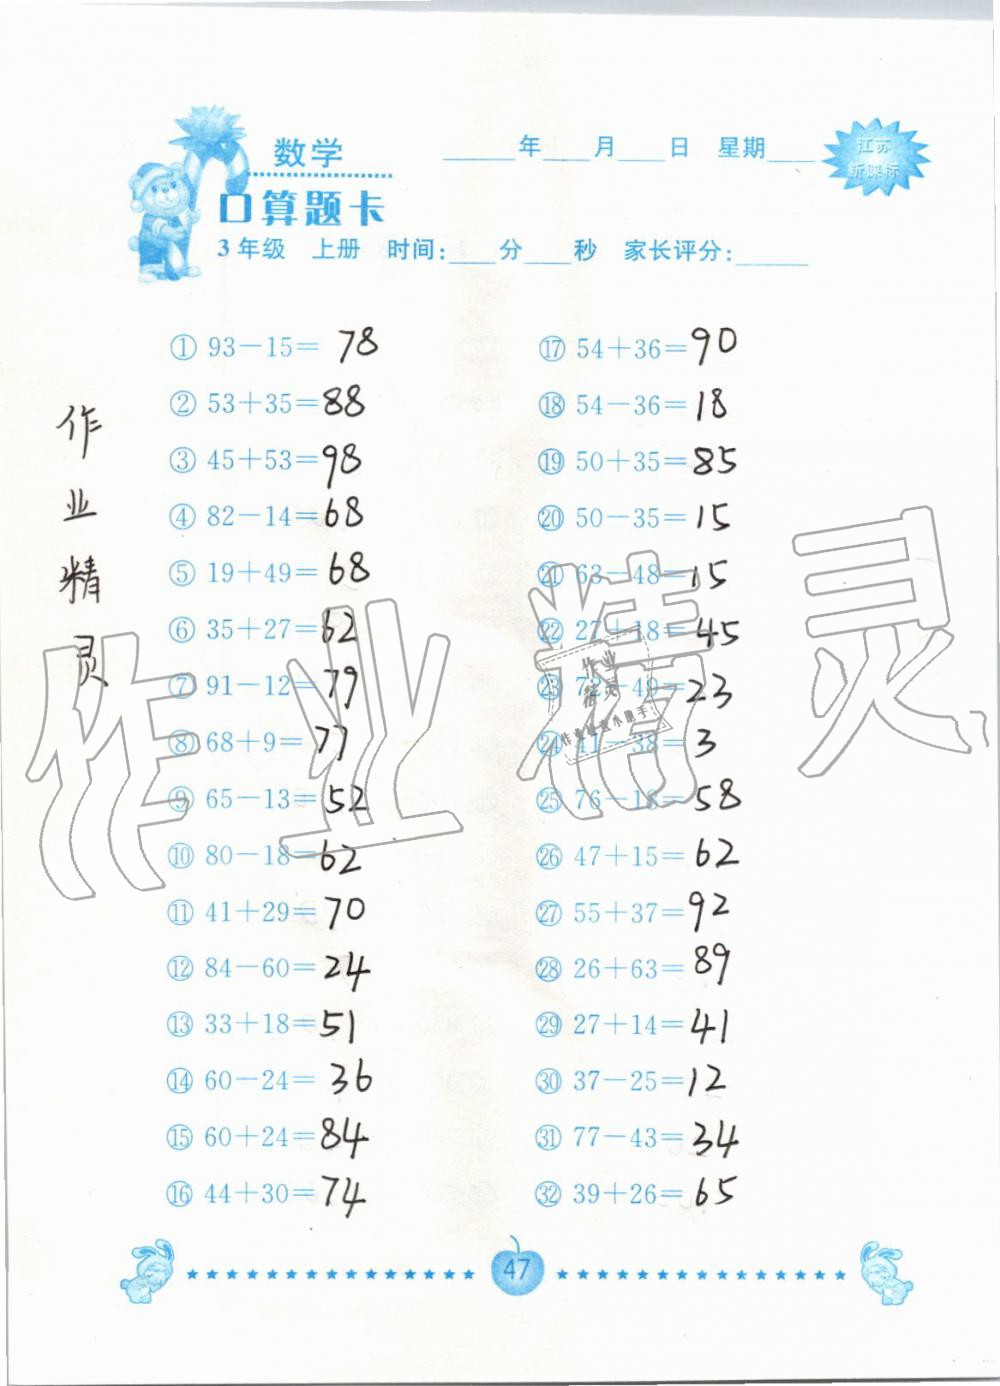 数学
____年____月____日 星期____
江苏
新课标
口算题卡
3年级 上册 时间:____分____秒 家长评分:____
① 93－15＝ 78
② 53＋35＝88
③ 45＋53＝98
④ 82－14＝68
⑤ 19＋49＝ 68
⑥ 35＋27＝62
⑦ 91－12＝79
⑧ 68＋9＝77
⑨ 65－13＝52
⑩ 80－18＝62
⑪ 41＋29＝70
⑫ 84－60＝24
⑬ 33＋18＝51
⑭ 60－24＝ 36
⑮ 60＋24＝84
⑯ 44＋30＝74
⑰ 54＋36＝90
⑱ 54－36＝18
⑲ 50＋35＝85
⑳ 50－35＝15
㉑ 63－48＝15
㉒ 27＋18＝45
㉓ 72－49＝23
㉔ 41－38＝3
㉕ 76－18＝58
㉖ 47＋15＝62
㉗ 55＋37＝92
㉘ 26＋63＝89
㉙ 27＋14＝41
㉚ 37－25＝12
㉛ 77－43＝34
㉜ 39＋26＝65
作业精灵
作业精灵
作业
精灵
作业检查小助手
47